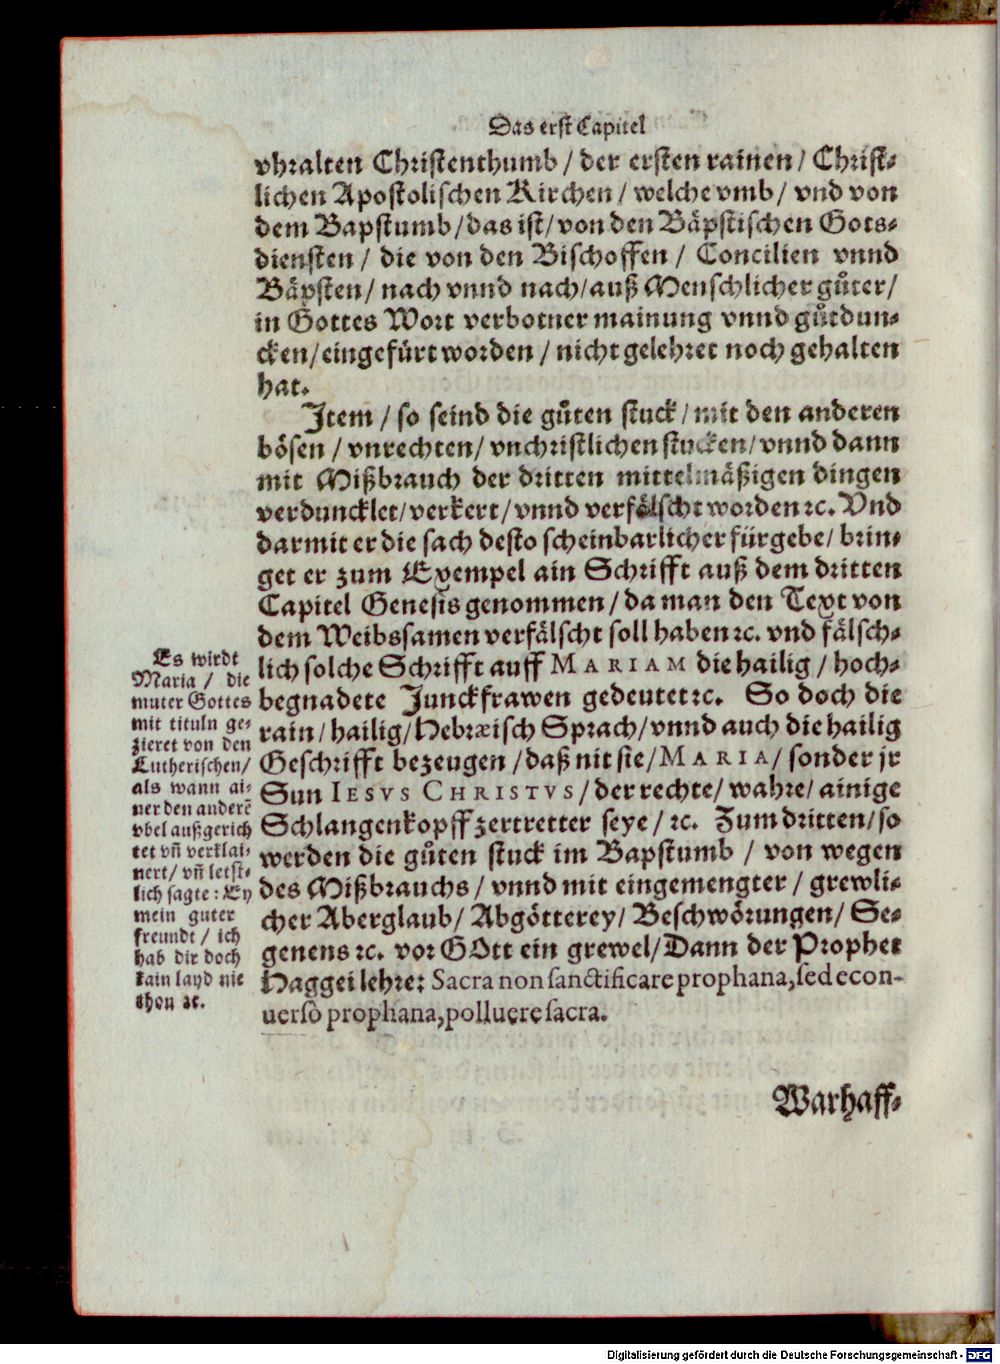 Das erst Capitel
vhralten Christenthumb / der ersten rainen / Christ⸗
lichen Apostolischen Kirchen / welche vmb / vnd von
dem Bapstumb / das ist / von den Bäpstischen Gots⸗
diensten / die von den Bischoffen / Concilien vnnd
Bäpsten / nach vnnd nach / auß Menschlicher gůter /
in Gottes Wort verbotner mainung vnnd gůtdun⸗
cken / eingefürt worden / nicht gelehret noch gehalten
hat.
Item / so seind die gůten stuck / mit den anderen
bösen / vnrechten / vnchristlichen stucken / vnnd dann
mit Mißbrauch der dritten mittelmäßigen dingen
verduncklet / verkert / vnnd verfälscht worden ꝛc. Vnd
darmit er die sach desto scheinbarlicher fürgebe / brin⸗
get er zum Exempel ain Schrifft auß dem dritten
Capitel Genesis genommen / da man den Text von
dem Weibssamen verfälscht soll haben ꝛc. vnd fälsch⸗
lich solche Schrifft auff MARIAM die hailig / hoch⸗
begnadete Junckfrawen gedeutet ꝛc. So doch die
rain / hailig / Hebræisch Sprach / vnnd auch die hailig
Geschrifft bezeugen / daß nit sie / MARIA / sonder jr
Sun IESVS CHRISTVS / der rechte / wahre / ainige
Schlangenkopff zertretter seye / ꝛc. Zum dritten / so
werden die gůten stuck im Bapstumb / von wegen
des Mißbrauchs / vnnd mit eingemengter / grewli⸗
cher Aberglaub / Abgötterey / Beschwörungen / Se⸗
genens ꝛc. vor GOtt ein grewel / Dann der Prophet
Haggei lehre: Sacra non sanctificare prophana, sed econ-
uersò prophana, polluere sacra.
Es wirdt
Maria / die
muter Gottes
mit tituln ge⸗
zieret von den
Lutherischen /
als wann ai⸗
ner den anderē
vbel außgerich
tet vñ verklai⸗
nert / vñ letst⸗
lich sagte: Ey
mein guter
freundt / ich
hab dir doch
kain layd nie
thon ꝛc.
Warhaff⸗
Digitalisierung gefördert durch die Deutsche Forschungsgemeinschaft - DFG